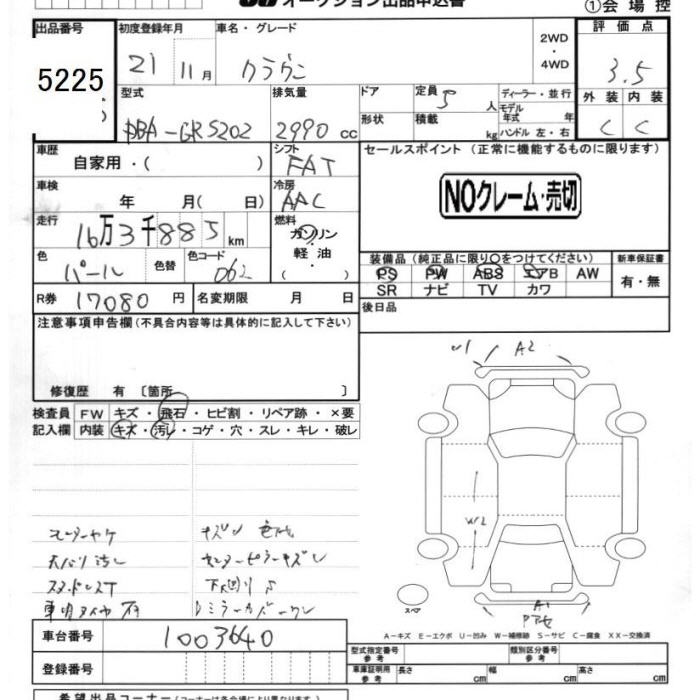 オークション出品申込書
①会場控
出品番号 初度登録年月 車名・グレード 2WD・4WD 評価点
5225 21 11月 クラウン 3.5
型式 排気量 ドア 定員 5人 ディーラー・並行 外装 内装
DBA-GRS202 2990 cc 形状 積載 kg モデル年式 年 ハンドル 左・右 C C
車歴 自家用・( ) シフト FAT セールスポイント(正常に機能するものに限ります)
車検 年 月( 日) 冷房 AAC NOクレーム・売切
走行 16万3千885km 燃料 ガソリン・軽油・( )
色 パール 色替 色コード 062 装備品(純正品に限り○をつけてください) 新車保証書
PS PW ABS エアB AW 有・無
SR ナビ TV カワ
R券 17080円 名変期限 月 日 後日品
注意事項申告欄(不具合内容等は具体的に記入して下さい)
修復歴 有〔箇所 〕
検査員 FW キズ・飛石・ヒビ割・リペア跡・×要
記入欄 内装 キズ・汚レ・コゲ・穴・スレ・キレ・破レ
W1 A2
W2
天バリ汚レ センターピラーキズ
スタッドレスT 下廻りサ
スペア
A1
A-キズ E-エクボ U-凹み W-補修跡 S-サビ C-腐食 XX-交換済
車台番号 1003640 型式指定番号 参考 類別区分番号 参考
登録番号 車庫証明用 参考 長さ cm 幅 cm 高さ cm
希望出品コーナー